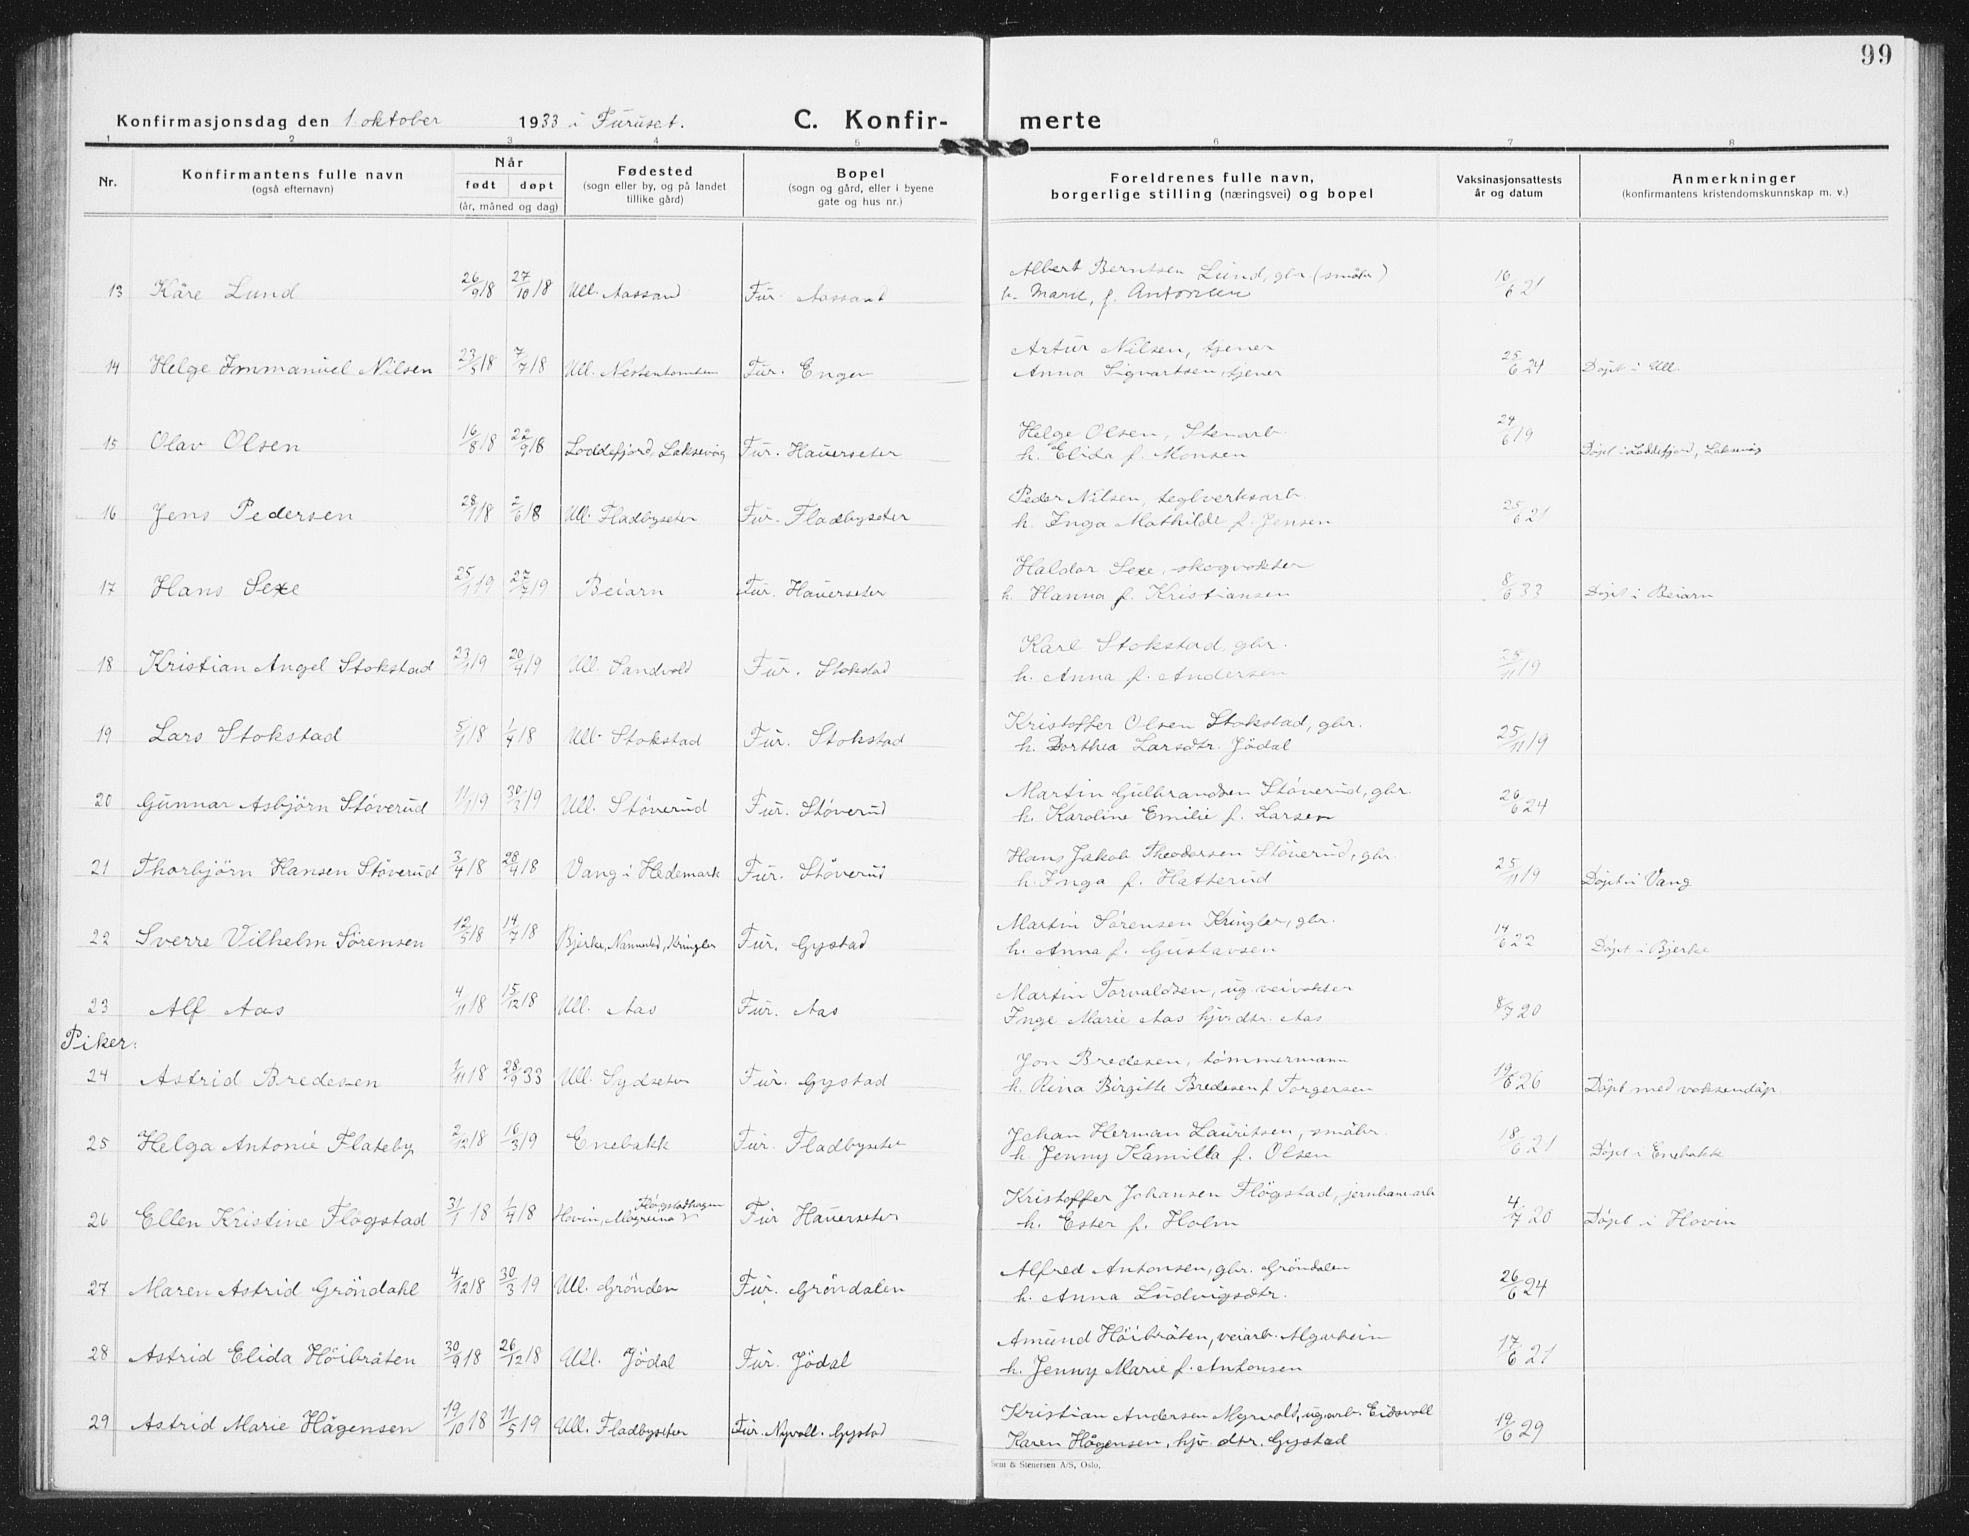 99
Konfirmasjonsdag den 1. oktober 1933 i Furuset. C. Konfir- merte
1 2 3 4 5 6 7 8
Nr. Konfirmantens fulle navn (også efternavn) Når født døpt (år, måned og dag) Fødested (sogn eller by, og på landet tillike gård) Bopel (sogn og gård, eller i byene gate og hus nr.) Foreldrenes fulle navn, borgerlige stilling (næringsvei) og bopel Vaksinasjonsattests år og datum Anmerkninger (konfirmantens kristendomskunnskap m. v.)
Albert Berntsen Lund, gbr. (småbr)
13 Kåre Lund 26/9 18 27/10 18 Ull. Aassand Fur. Aassand h. Marie, f. Antonsen 16/6 21
Artur Nilsen, tjener
14 Helge Immanuel Nilsen 23/5 18 7/7 18 Ull. Nestentomten Fur. Enger Anna Sigvartsen, tjener 25/6 24 Döpt i Ull.
Helge Olsen, Stenarb.
15 Olav Olsen 16/8 18 22/9 18 Loddefjord, Laksevåg Fur. Hauerseter h. Elida f. Monsen 24/6 19 Döpt i Loddefjord, Laksevåg
Peder Nilsen, teglverksarb.
16 Jens Pedersen 28/1 18 2/6 18 Ull. Fladbyseter Fur. Fladbyseter h. Inga Mathilde f. Jensen 25/6 21
Haldor Sexe, skogvokter
17 Hans Sexe 25/1 19 27/7 19 Beiarn Fur. Hauerseter h. Hanna f. Kristiansen 8/6 33 Döpt i Beiarn
Karl Stokstad, gbr.
18 Kristian Angel Stokstad 23/1 19 20/4 19 Ull. Sandvold Fur. Stokstad h. Anna f. Andersen 25/11 19
Kristoffer Olsen Stokstad, gbr.
19 Lars Stokstad 5/1 18 1/4 18 Ull. Stokstad Fur. Stokstad h. Dorthea Larsdtr. Jödal 25/11 19
Martin Gulbrandsen Stöverud, gbr.
20 Gunnar Asbjörn Stöverud 11/1 19 30/3 19 Ull. Stöverud Fur. Stöverud h. Karoline Emilie f. Larsen 26/6 24
Hans Jakob Theodorsen Stöverud, gbr.
21 Thorbjörn Hansen Stöverud 3/4 18 28/4 18 Vang i Hedemark Fur. Stöverud h. Inga f. Hatterud 25/11 19 Döpt i Vang
Martin Sörensen Kringler, gbr.
22 Sverre Vilhelm Sörensen 12/5 18 14/7 18 Bjerke, Nannestad, Kringler Fur. Gystad h. Anna f. Gustavsen 14/6 22 Döpt i Bjerke
Martin Torvaldsen, ug. veivokter
23 Alf Aas 4/11 18 15/12 18 Ull. Aas Fur. Aas Inge Marie Aas hjv. dtr. Aas 8/7 20
Piker:
Jon Bredesen, tömmermann
24 Astrid Bredesen 1/11 18 28/9 33 Ull. Sydseter Fur. Gystad h. Rina Birgitte Bredesen f. Torgersen 19/6 26 Döpt med voksendåp.
Johan Herman Lauritsen, småbr.
25 Helga Antonie Flateby 2/12 18 16/3 19 Enebakk Fur. Fladbyseter h. Jenny Kamilla f. Olsen 18/6 21 Döpt i Enebakk
Kristoffer Johansen Flögstad, jernbanearb
26 Ellen Kristine Flögstad 31/1 18 1/4 18 Hovin, Mogreina Flögstadhagen Fur Hauerseter h. Ester f. Holm 4/7 20 Döpt i Hovin
Alfred Antonsen, gbr. Gröndalen
27 Maren Astrid Gröndahl 4/12 18 30/3 19 Ull. Grönden Fur. Gröndalen h. Anna Ludvigsdtr. 26/6 24
Amund Höibråten, veiarb. Algarheim
28 Astrid Elida Höibråten 30/9 18 26/12 18 Ull. Jödal Fur. Jödal h. Jenny Marie f. Antonsen 17/6 21
Kristian Andersen Myrvold, ug. arb. Eidsvoll
29 Astrid Marie Hågensen 19/10 18 11/5 19 Ull. Fladbyseter Fur. Nyvoll. Gystad Karen Hågensen, hjv. dtr. Gystad 19/6 29
Sem & Stenersen A/S, Oslo.